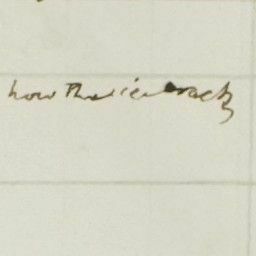 how the ice cracks